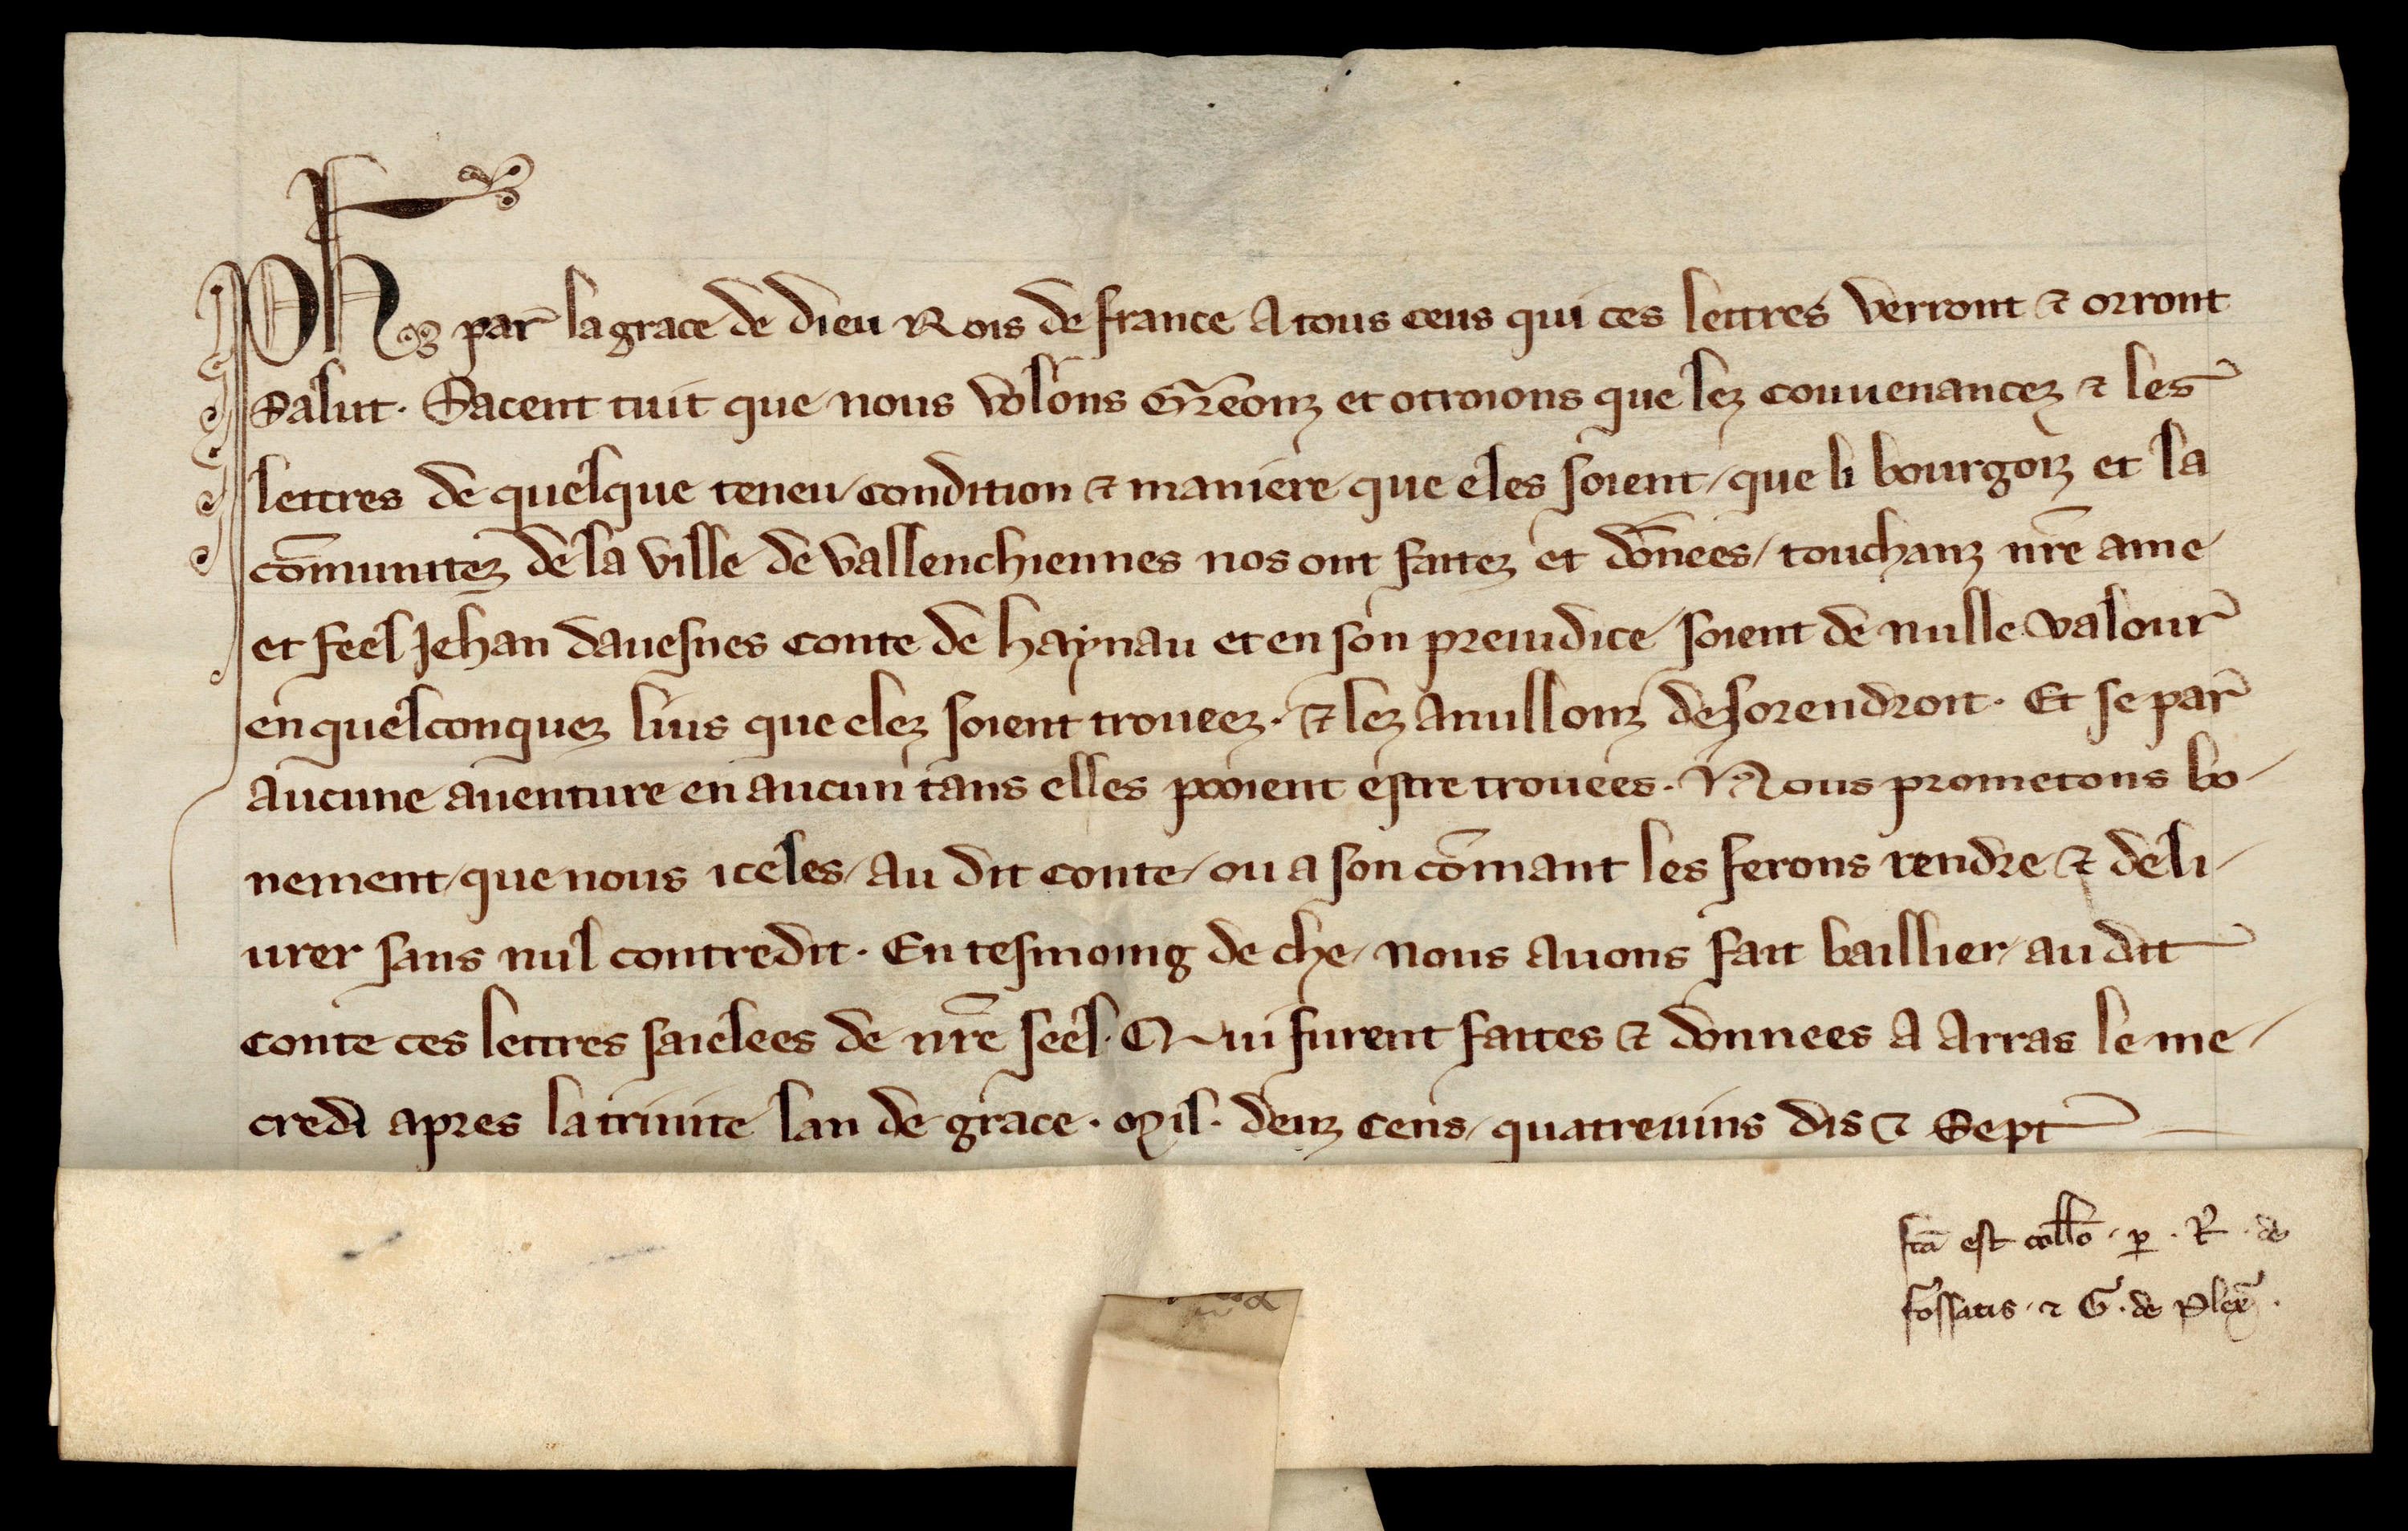 Ph's par la grace de dieu Rois de france A tous ceus qui ces lettres verront ⁊ orront
Salut. Sacent tuit que nous volons Greonz et otroions que lez conuenancez ⁊ les
lettres de quelque teneu/ condition ⁊ maniere que eles soient/ que li bourgoiz et la
cōmunitez de la ville de vallenchiennes nos ont faitez et dōnees/ touchanz nr̄e ame
et feel Jehan dauesnes conte de haynau et en son preiudice soient de nulle valour
en quelconquez lius que elez soient trouueez. ⁊ lez anullonz desorendroit. Et se par
aucune auenture en aucun tans elles pooient estre trouees. Nous prometons bo-
nement/ que nous iceles/ au dit conte/ ou a son cōmant les ferons rendre ⁊ deli-
urer sans nul contredit. En tesmoing de che/ nous auons fait baillier/ au dit
conte ces lettres saielees de nr̄e seel. Qui furent faites ⁊ donnees a Arras le me-
credi apres la trinite lan de grace. Mil. deuz cens/ quatreuins dis ⁊ Sept
fc̄a est coll̄o. p. R. de
fossatis. ⁊ G. de Plex̄.